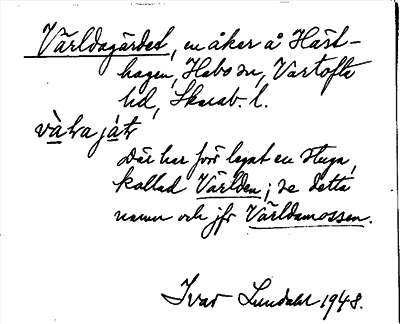 Världsgärdet, en åker å Häst-
hagen, Habo sn, Vartofta
hd, Skarab. l.
Där har förr legat en stuga,
kallad Världen; se detta
namn och jfr Världsmossen.
Ivar Lundahl 1948.